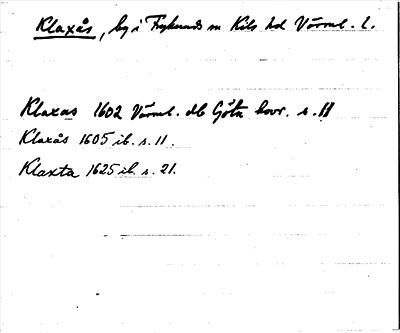 Klaxås, by i Frykerud sn Kils hd Värml. l.
Klaxas 1602 Värml. db Göta hovr. s. 11
Klaxås 1605 ib. s. 11.
Klaxta 1625 ib. s. 21.